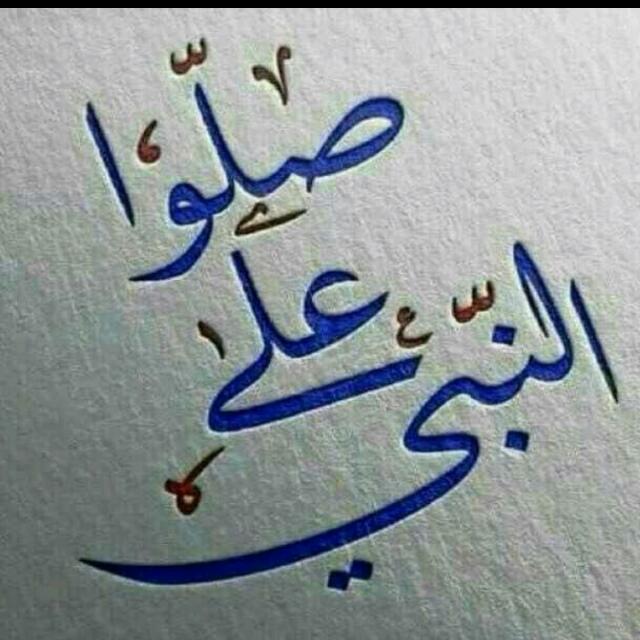 صلّوا
على
النّبي